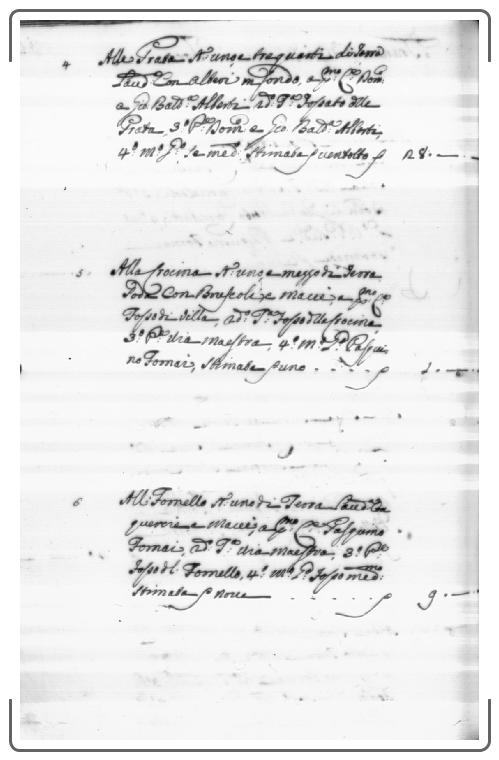 4 Alle Prata St. uno e tre quarti di Terra
Laud. Con alberi in fondo, a p.mo C.o Dom.
e Gio. Batt.a Alberti, 2.do P.te Fossato delle
Prata, 3.o P.te Dom. e Gio. Batt.a Alberti,
4.o m.o P.te le med. Stimata p ventotto p 28. —
5. Alla frocina St. uno e mezzo di Terra
Soda Con Bruscoli, e Maccie, a p.mo C.o
Fosso di Villa, 2.do P.te Fosso della frocina,
3.o P.te via maestra, 4.o m.o P.te Pasqui
no Fornai, Stimata p uno . . . . p 1. —
6 All Fornello St. uno di Terra Laud. Con
quercie e Maccie, a p.mo C.o Pasquino
Fornai, 2.do P.te via Maestra, 3.o P.te
Fosso d.l Fornello, 4.o m.o P.te Fosso med.mo
Stimata p nove . . . . . . p 9. —